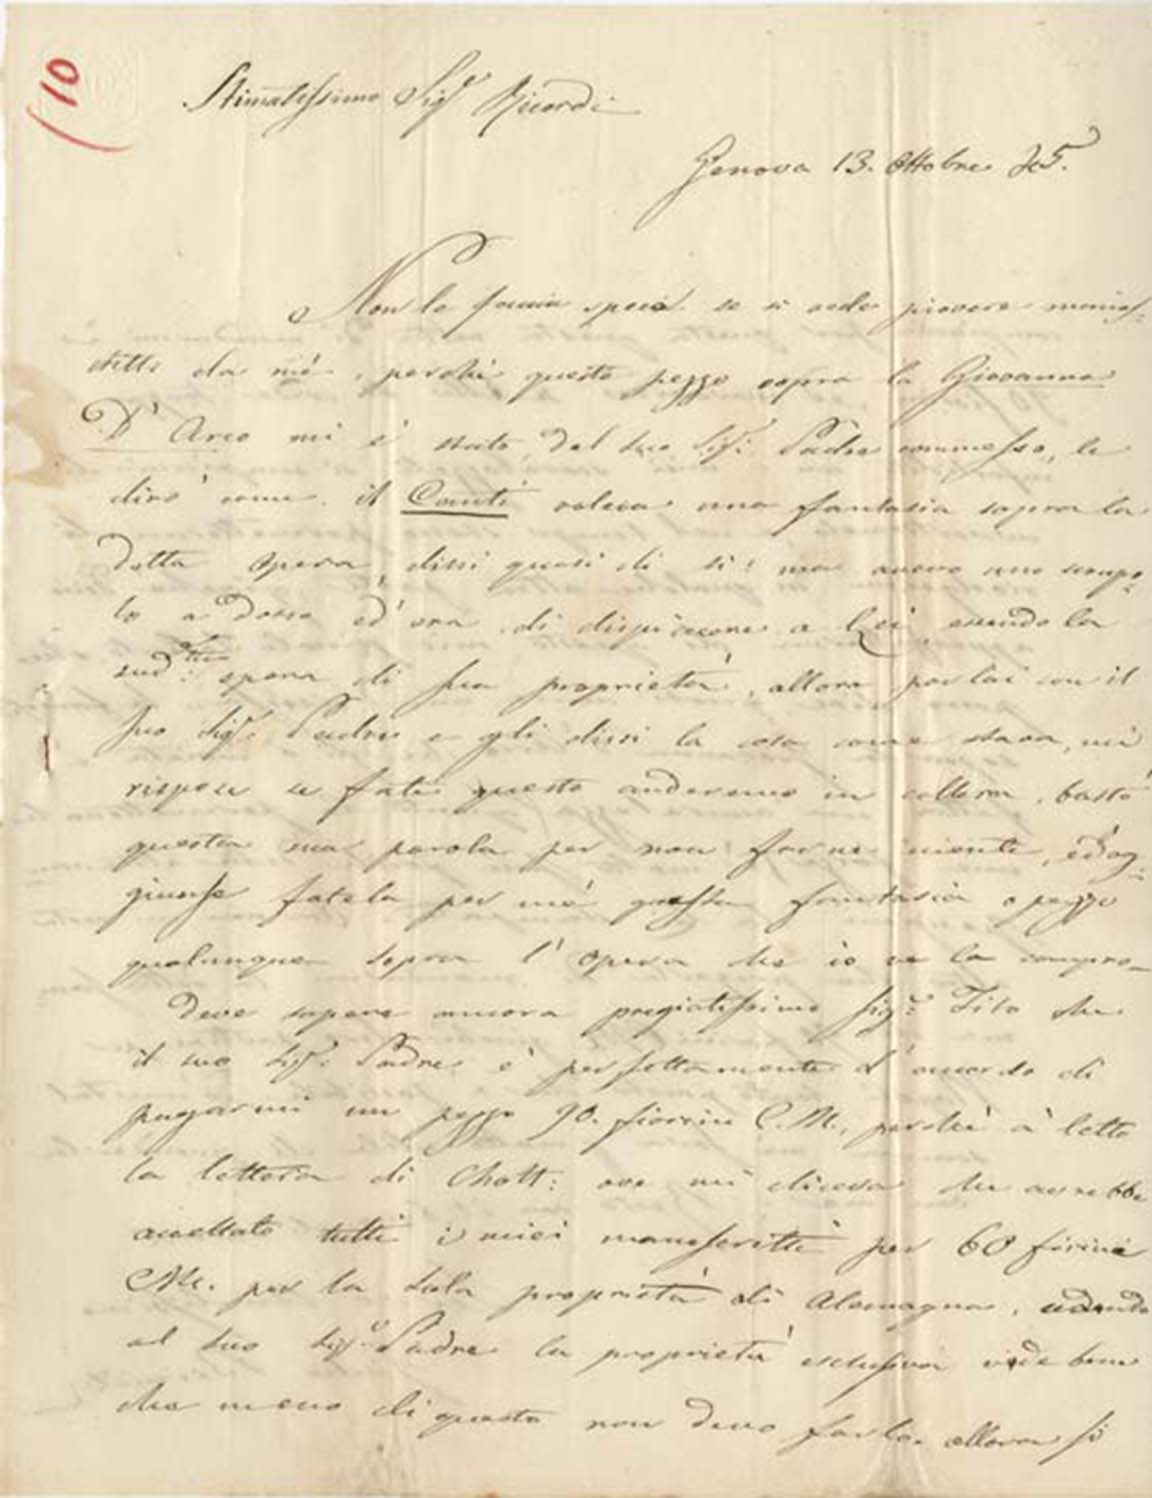 (10
Stimatissimo Sigr Ricordi
Genova 13. Ottobre 845.
Non le faccia specie se si vede piovere manos-
critti da mè, perchè questo pezzo sopra la Giovanna
D'Arco mi è stato dal suo Sigr: Padre commesso, le
dirò come. il Canti voleva una fantasia sopra la
detta Opera dissi quasi di si: ma avevo uno scrupo-
lo a dosso ed'era di dispiacere a Lei, essendo la
sudtta: opera di sua proprietà, allora parlai con il
suo Sigr. Padre e gli dissi la cosa come stava, mi
rispose se fate questo anderemo in collera, bastò
questa sua parola per non farne niente, ed'ag-
giunse fatela per mè questa fantasia o pezzo
qualunque sopra l'Opera che io ve la compro_
Deve sapere ancora pregiatissimo Sigr: Tito che
il suo Sigr: Padre è perfettamente d'accordo di
pagarmi un pezzo 90. fiorini C.M., perchè à letto
la lettera di Chott: ove mi diceva che avrebbe
accettato tutti i miei manoscritti per 60 fiorini
C.M. per la sola proprietà di Alemagna, cedendo
al suo Sigr. Padre la proprietà esclusiva vede bene
che meno di questo non devo farlo. allora si